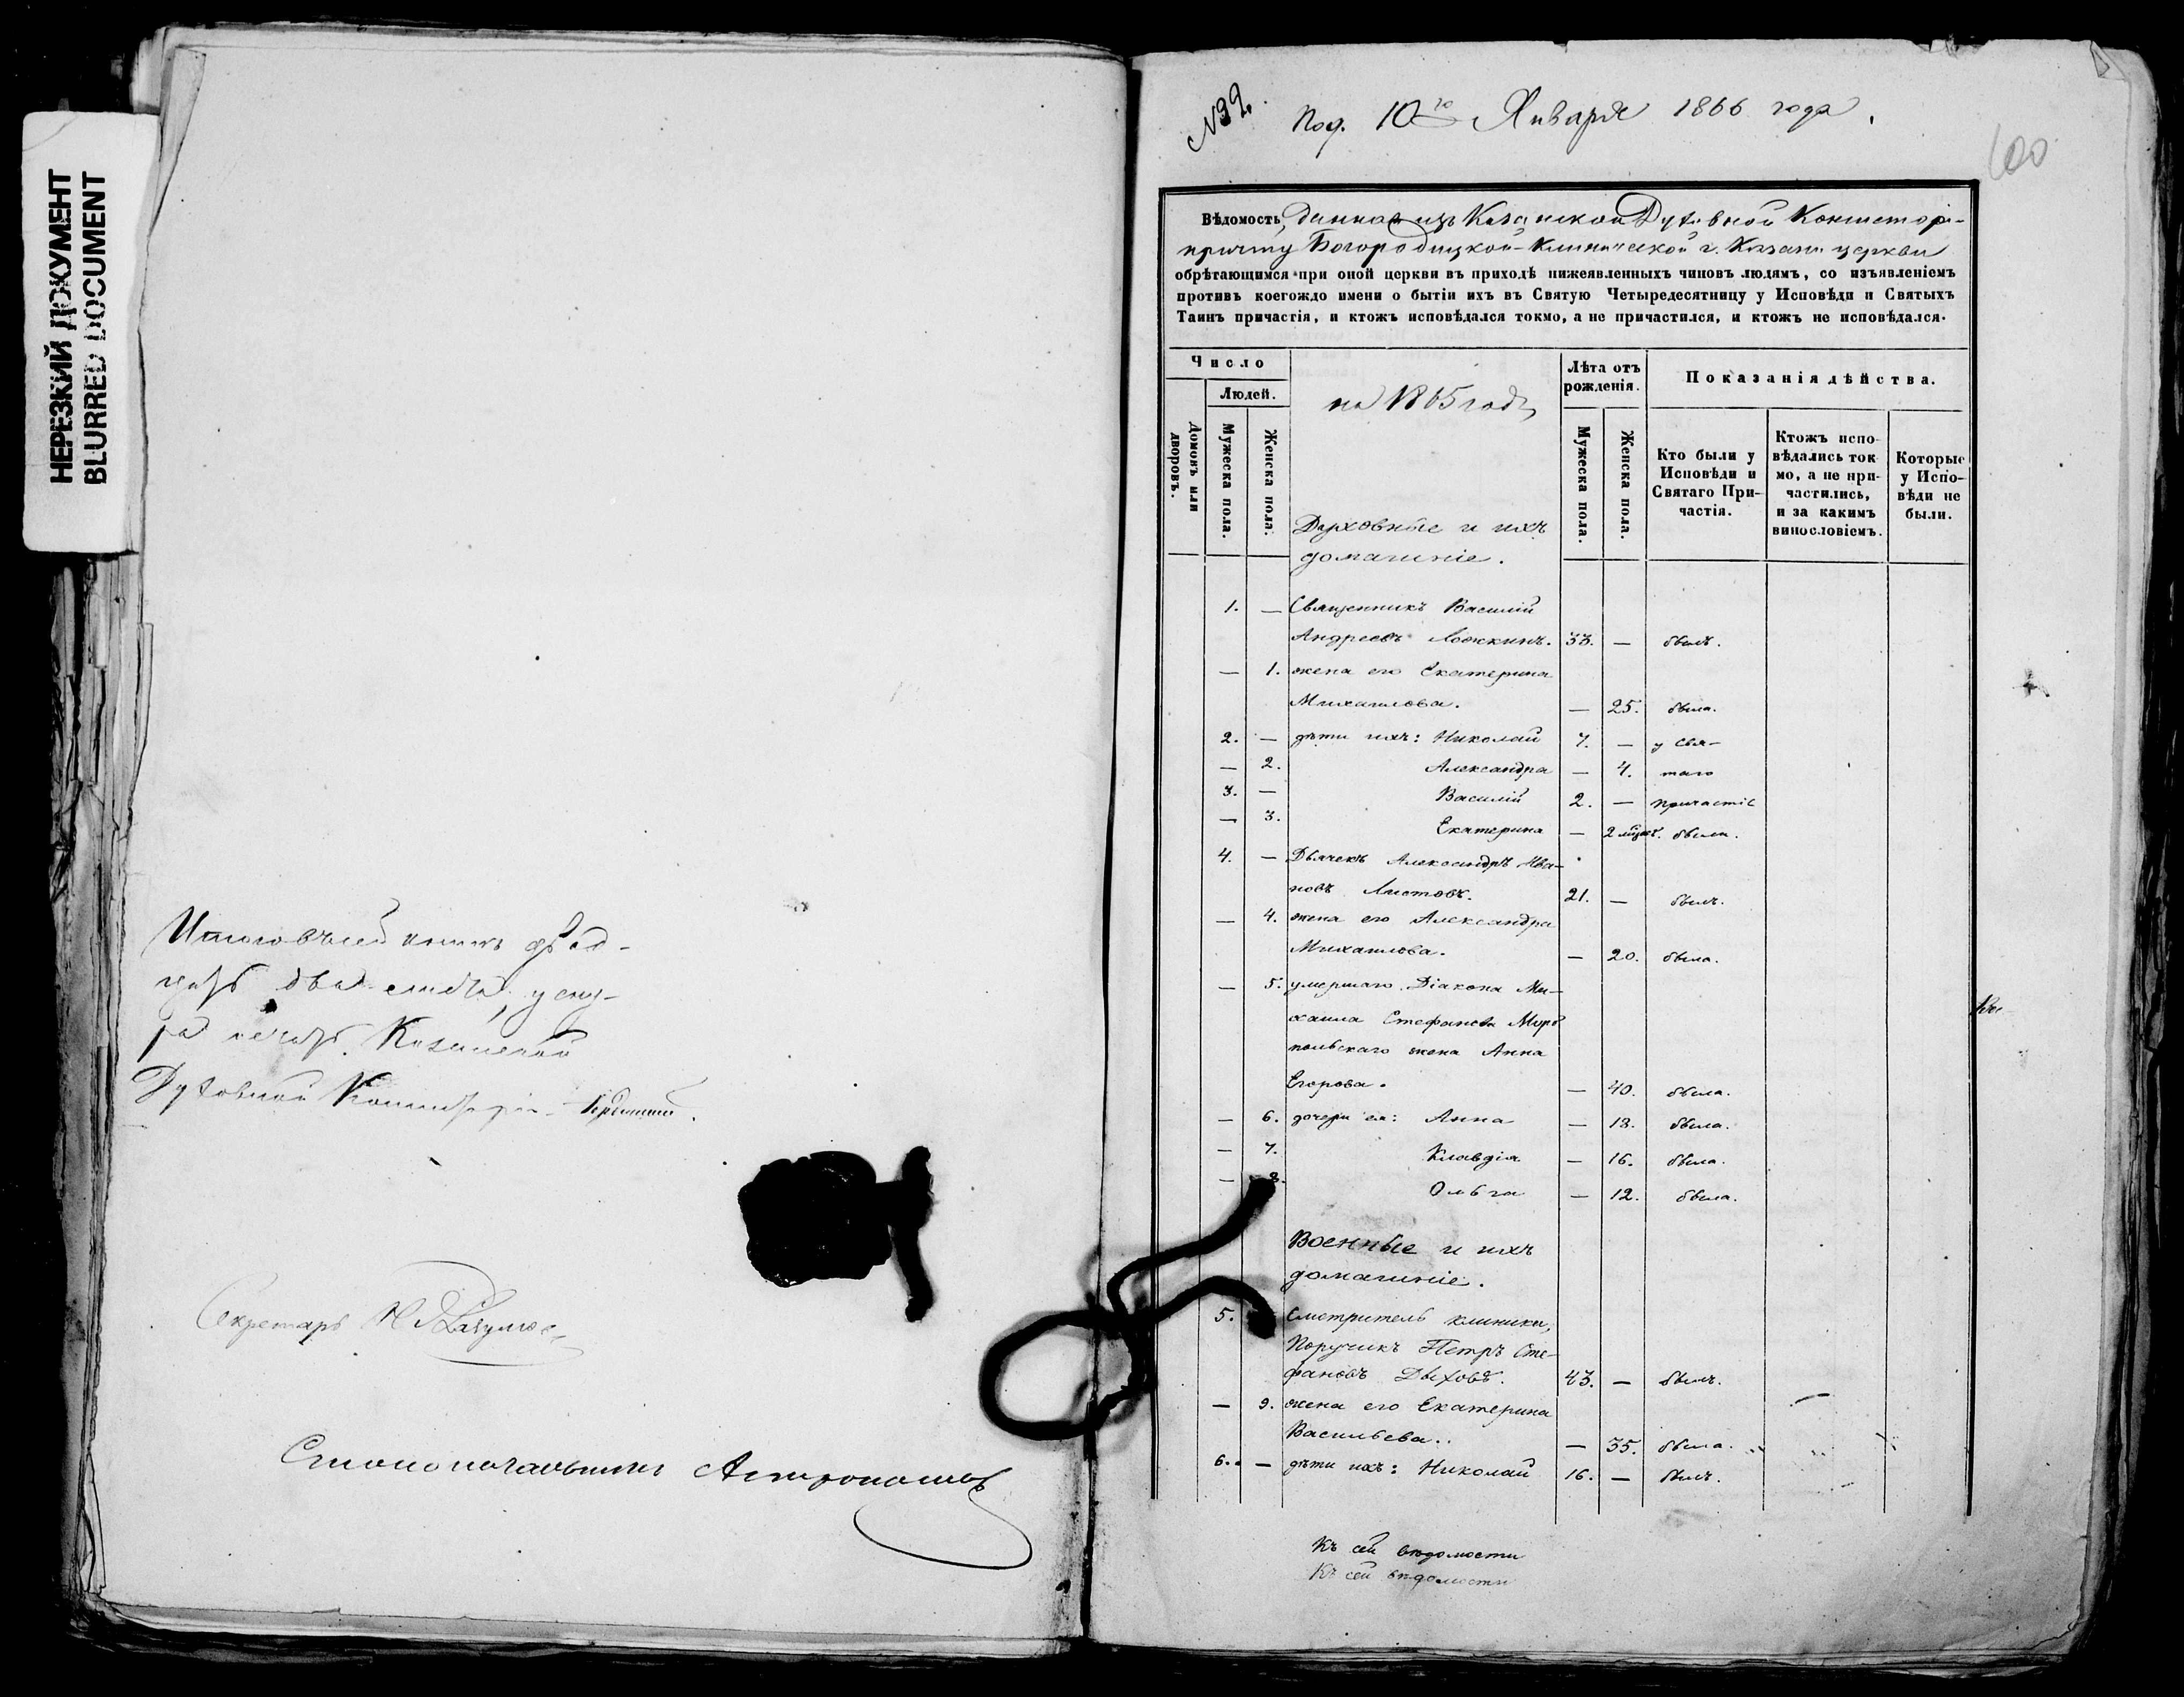 НЕРЕЗКИЙ ДОКУМЕНТ
BLURRED DOCUMENT
Секретарь
Столоначальникъ
Духовной Консисторіи
№ 32.
Под. 10го Января 1866 года.
100
Вѣдомость, данная изъ Казанской Духовной Консисторіи
причту Богородицкой-Клинической г. Казани церкви
обрѣтающимся при оной церкви въ приходѣ нижеявленныхъ чиновъ людямъ, со изъявленіемъ
противъ коегождо имени о бытіи ихъ въ Святую Четыредесятницу у Исповѣди и Святыхъ
Таинъ причастія, и ктожъ исповѣдался токмо, а не причастился, и ктожъ не исповѣдался.
Число
Людей.
Домовъ или дворовъ.
Мужеска пола.
Женска пола.
на 1865 годъ
Лѣта отъ
рожденія.
Мужеска пола.
Женска пола.
Показанія дѣйства.
Кто были у
Исповѣди и
Святаго При-
частія.
Ктожъ испо-
вѣдались ток
мо, а не при-
частились,
и за какимъ
винословіемъ.
Которые
у Испо-
вѣди не
были.
Духовные и ихъ
домашніе.
1. — Священникъ Василій
Андреевъ Ложкинъ. 33. — былъ.
— 1. жена его Екатерина
Михаилова. — 25. была.
2. — дѣти ихъ: Николай 7. — у Свя-
— 2. Александра — 4. таго
3. — Василій 2. — Причастіе
— 3. Екатерина — 2 мѣсяц. были.
4. — Дьячекъ Александръ Ива-
новъ Листовъ. 21. — былъ.
— 4. жена его Александра
Михаилова. — 20. была.
— 5. умершаго Діакона Ми-
хаила Стефанова
польскаго жена Анна
Егорова. — 40. была.
— 6. дочери ея: Анна — 18. была.
— 7. Клавдія — 16. была.
— 8. Ольга — 12. была.
Военные и ихъ
домашніе.
5. Смотритель клиники,
Поручикъ Петръ Сте-
фановъ Дыховъ. 43. — былъ.
— 9. жена его Екатерина
Васильева. — 35. была.
6. — дѣти ихъ: Николай 16. — былъ.
Къ сей вѣдомости
Къ сей вѣдомости